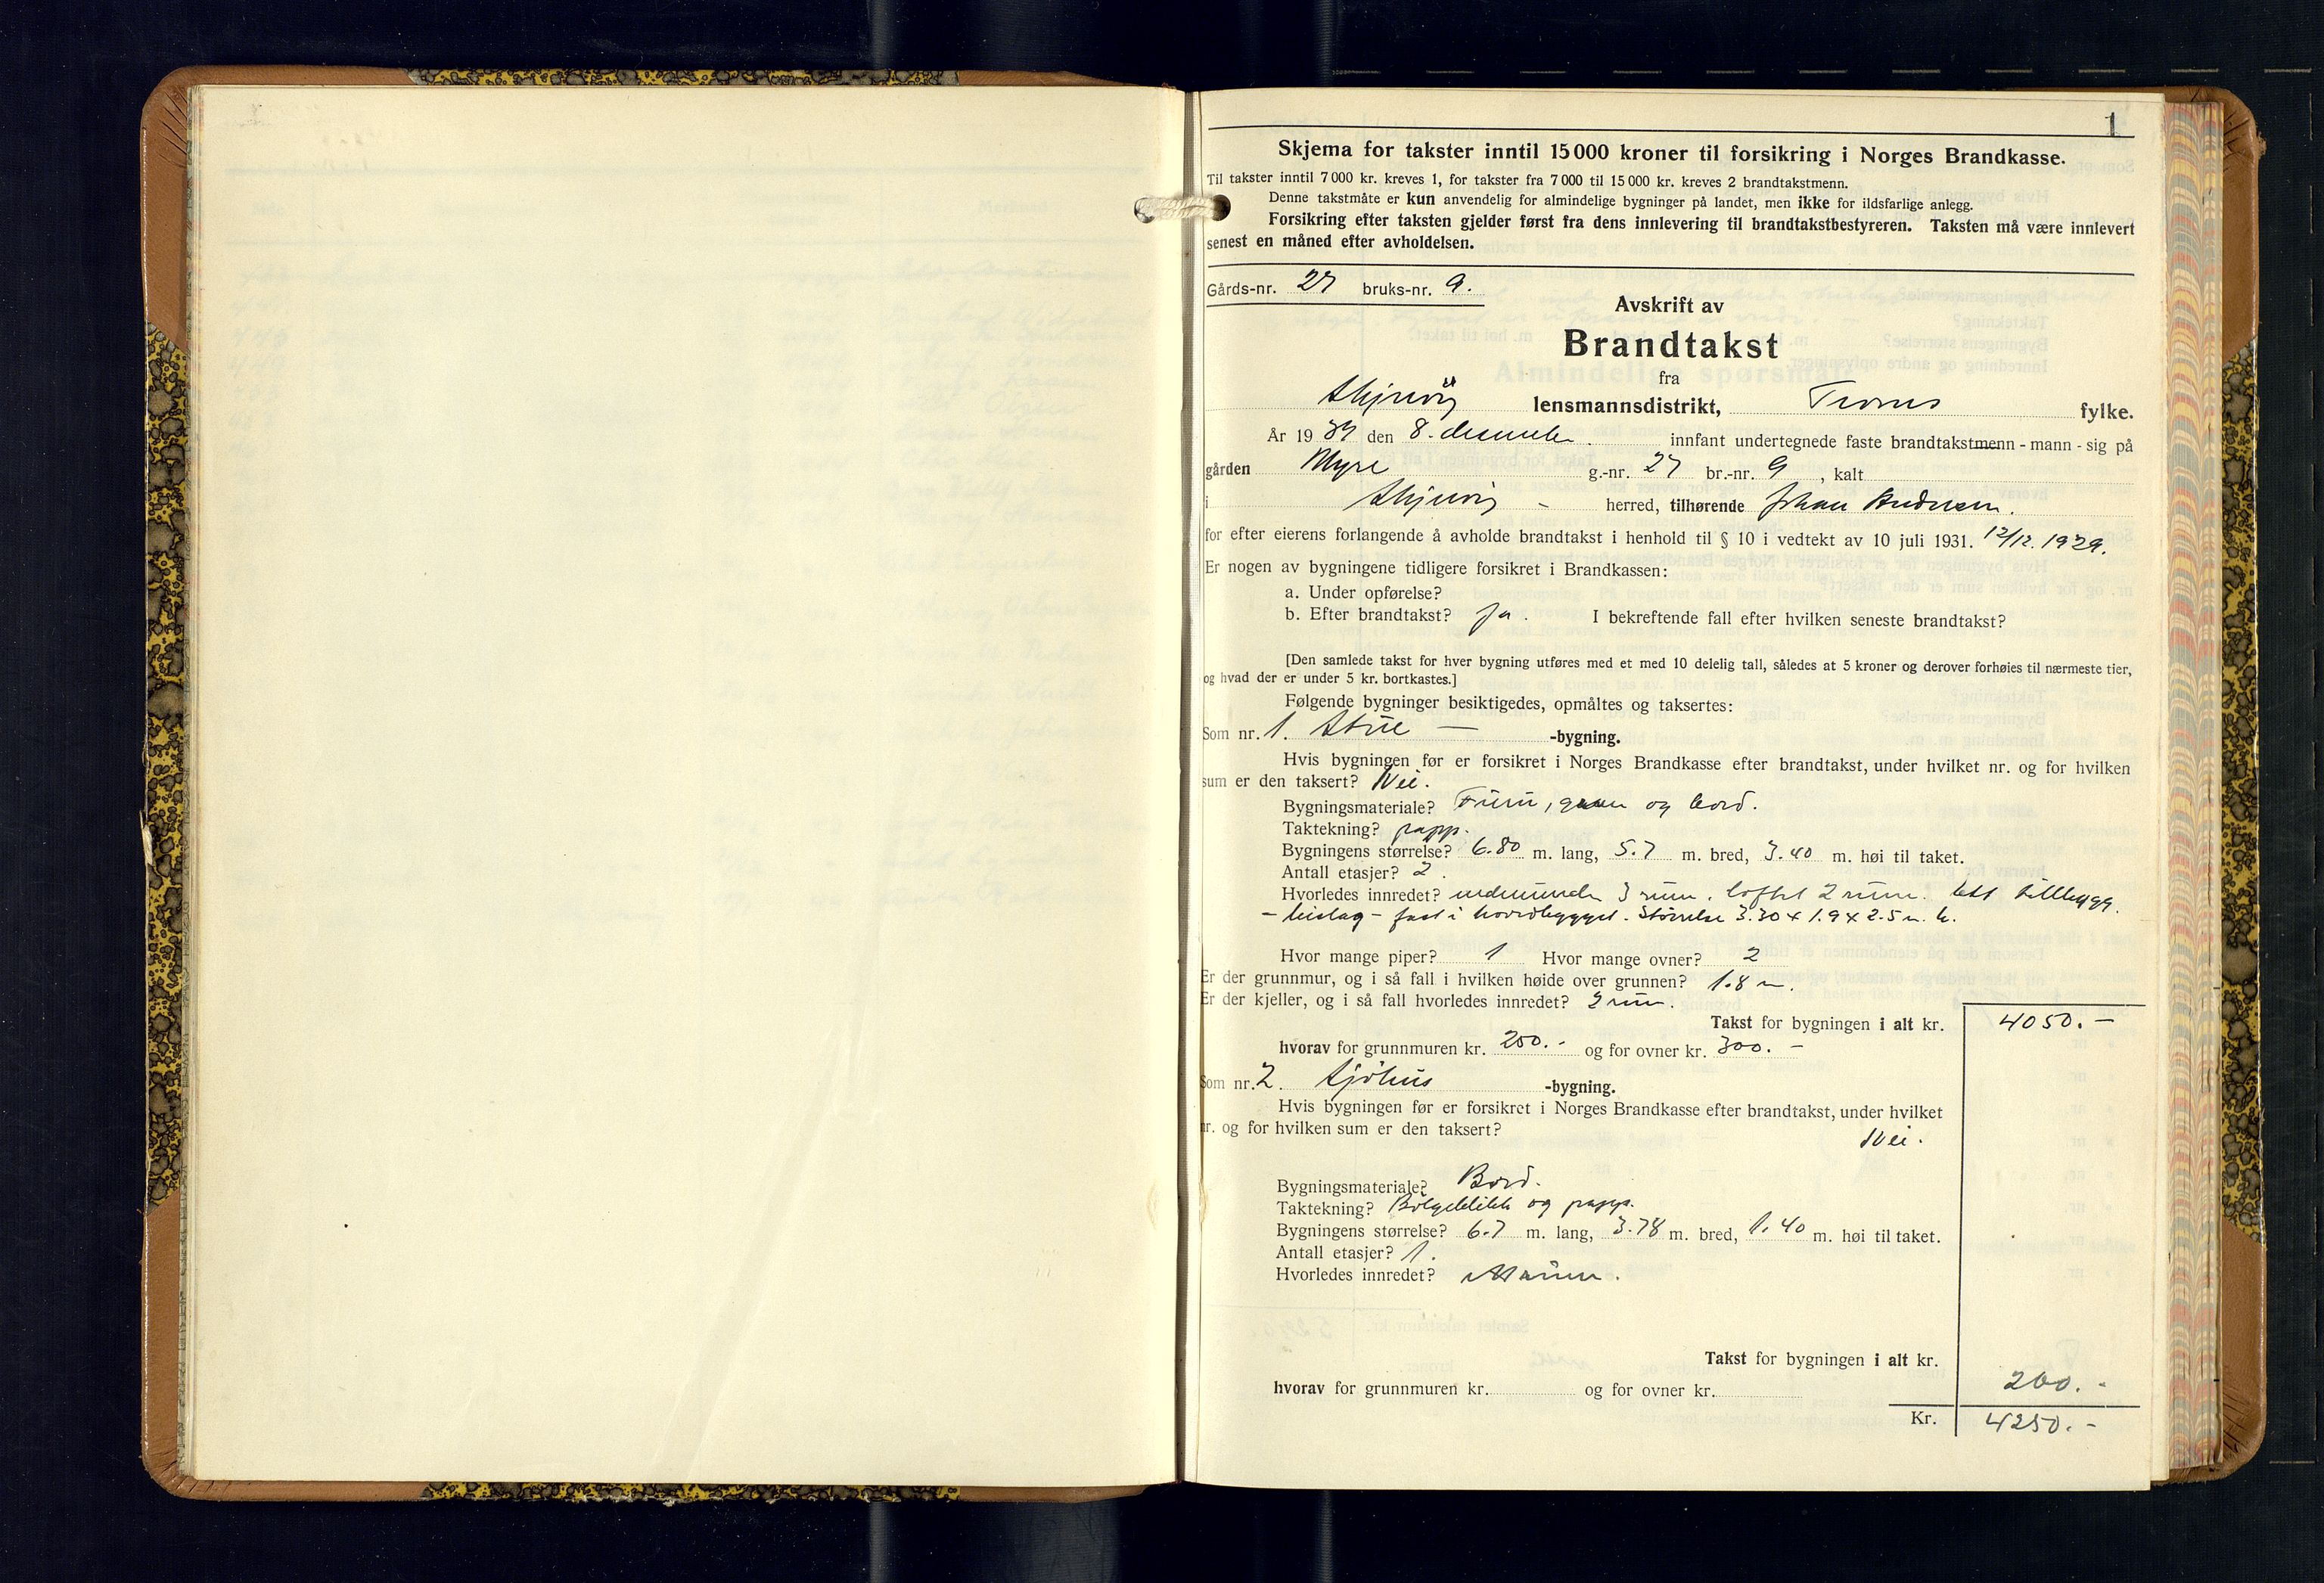 1
Skjema for takster inntil 15 000 kroner til forsikring i Norges Brandkasse.
Til takster inntil 7 000 kr. kreves 1, for takster fra 7 000 til 15 000 kr. kreves 2 brandtakstmenn.
Denne takstmåte er kun anvendelig for almindelige bygninger på landet, men ikke for ildsfarlige anlegg.
Forsikring efter taksten gjelder først fra dens innlevering til brandtakstbestyreren. Taksten må være innlevert
senest en måned efter avholdelsen.
Gårds-nr. 27 bruks-nr. 9.
Avskrift av
Brandtakst
fra
Skjervøy lensmannsdistrikt, Troms fylke.
År 1934 den 8. desember. innfant undertegnede faste brandtakstmenn - mann - sig på
gården Myre g.-nr. 27 br.-nr. 9, kalt
i Skjervøy - herred, tilhørende Johan Andersen.
for efter eierens forlangende å avholde brandtakst i henhold til § 10 i vedtekt av 10 juli 1931. 12/12. 1929.
Er nogen av bygningene tidligere forsikret i Brandkassen:
a. Under opførelse?
b. Efter brandtakst? Ja. I bekreftende fall efter hvilken seneste brandtakst?
[Den samlede takst for hver bygning utføres med et med 10 delelig tall, således at 5 kroner og derover forhøies til nærmeste tier,
og hvad der er under 5 kr. bortkastes.]
Følgende bygninger besiktigedes, opmåltes og taksertes:
Som nr. 1. Stue — -bygning.
Hvis bygningen før er forsikret i Norges Brandkasse efter brandtakst, under hvilket nr. og for hvilken
sum er den taksert? Nei.
Bygningsmateriale? Furu, gran og bord.
Taktekning? papp.
Bygningens størrelse? 6.80 m. lang, 5.7 m. bred, 3.40 m. høi til taket.
Antall etasjer? 2.
Hvorledes innredet? nedenunder 3 rum. loftet 2 rum. Ett tillbygg.
- bislag - fast i hovedbygget. Størrelse 3.30 x 1.9 x 2.5 m. h.
Hvor mange piper? 1 Hvor mange ovner? 2
Er der grunnmur, og i så fall i hvilken høide over grunnen? 1.8 m.
Er der kjeller, og i så fall hvorledes innredet? 2 rum.
Takst for bygningen i alt kr. 4050.-
hvorav for grunnmuren kr. 250.- og for ovner kr. 300.-
Som nr. 2. Sjøhus -bygning.
Hvis bygningen før er forsikret i Norges Brandkasse efter brandtakst, under hvilket
nr. og for hvilken sum er den taksert? Nei.
Bygningsmateriale? Bord.
Taktekning? Bølgeblikk og papp.
Bygningens størrelse? 6.7 m. lang, 3.78 m. bred, 1.40 m. høi til taket.
Antall etasjer? 1.
Hvorledes innredet? ett rum.
Takst for bygningen i alt kr.
hvorav for grunnmuren kr. og for ovner kr. 200.-
Kr. 4250.-